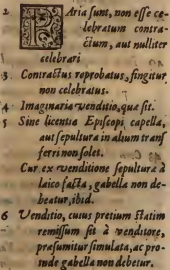 2 PAria sunt, non esse ce-
lebratum contra-
ctum, aut nulliter
celebrari
3. Contractus reprobatus, fingitur
non celebratus.
4 Imaginaria venditio, quæ sit.
5 Sine licentia Episcopi capella,
aut sepultura in alium transf
ferri non solet.
Cur ex venditione sepulturæ à
laico facta, gabella non de-
beatur, ibid.
6 Venditio, cuius pretium statim
remissum sit à venditore,
præsumitur simulata, ac pro-
inde gabella non debetur.